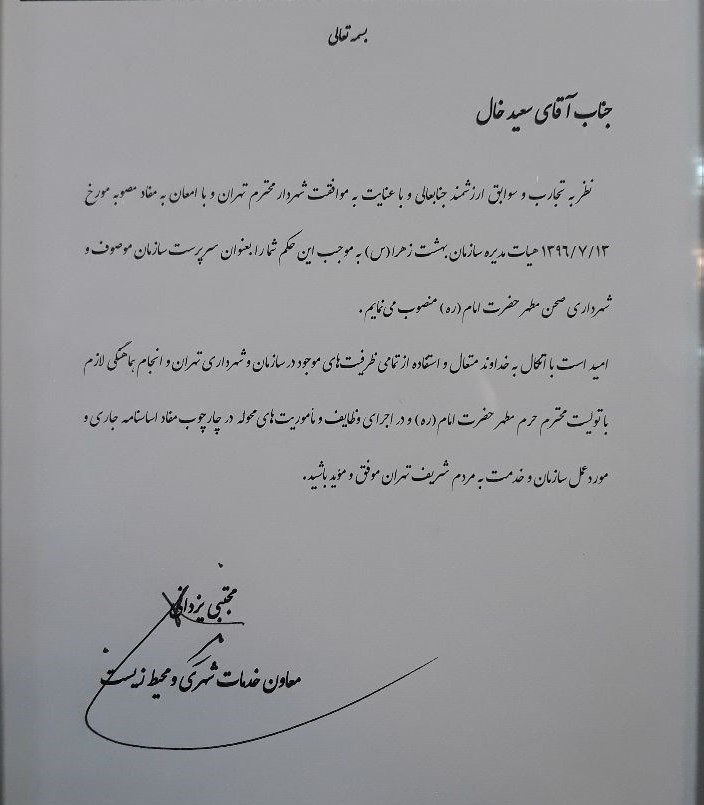 بسمه تعالی
جناب آقای سعید خال
نظر به تجارب و سوابق ارزشمند جنابعالی و با عنایت به موافقت شهردار محترم تهران و با امعان به مفاد مصوبه مورخ
۱۳۹٦/۷/۱۳ هیات مدیره سازمان بهشت زهرا (س) به موجب این حکم شما را بعنوان سرپرست سازمان موصوف و
شهرداری صحن مطهر حضرت امام (ره) منصوب می‌نمایم .
امید است با اتکال به خداوند متعال و استفاده از تمامی ظرفیت‌های موجود در سازمان و شهرداری تهران و انجام هماهنگی لازم
با تولیت محترم حرم مطهر حضرت امام (ره) و در اجرای وظایف و مأموریت‌های محوله در چارچوب مفاد اساسنامه جاری و
مورد عمل سازمان و خدمت به مردم شریف تهران موفق و مؤید باشید .
مجتبی یزدانی
معاون خدمات شهری و محیط زیست